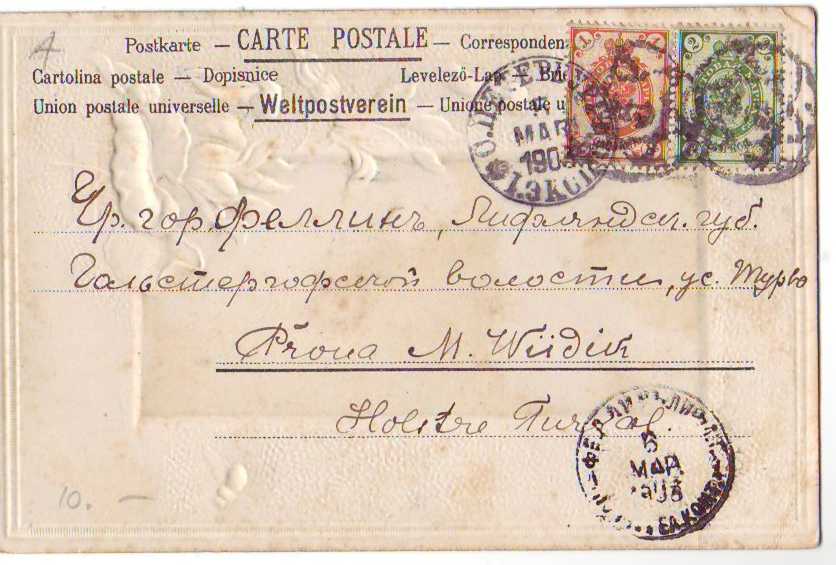 A
Postkarte — CARTE POSTALE — Corresponden
Cartolina postale — Dopisnice Levelező-Lap —
Union postale universelle — Weltpostverein — Unione postale u
1 2
МАР
190
1.ЭКСП
Чр. гор Феллинъ, Лифляндск. губ.
Гольстергофской волости, ус. Турво
Prona M. Wiidik
Holstre
ФЕЛЛИНЪ ЛИФЛ
5
МАР
10. —